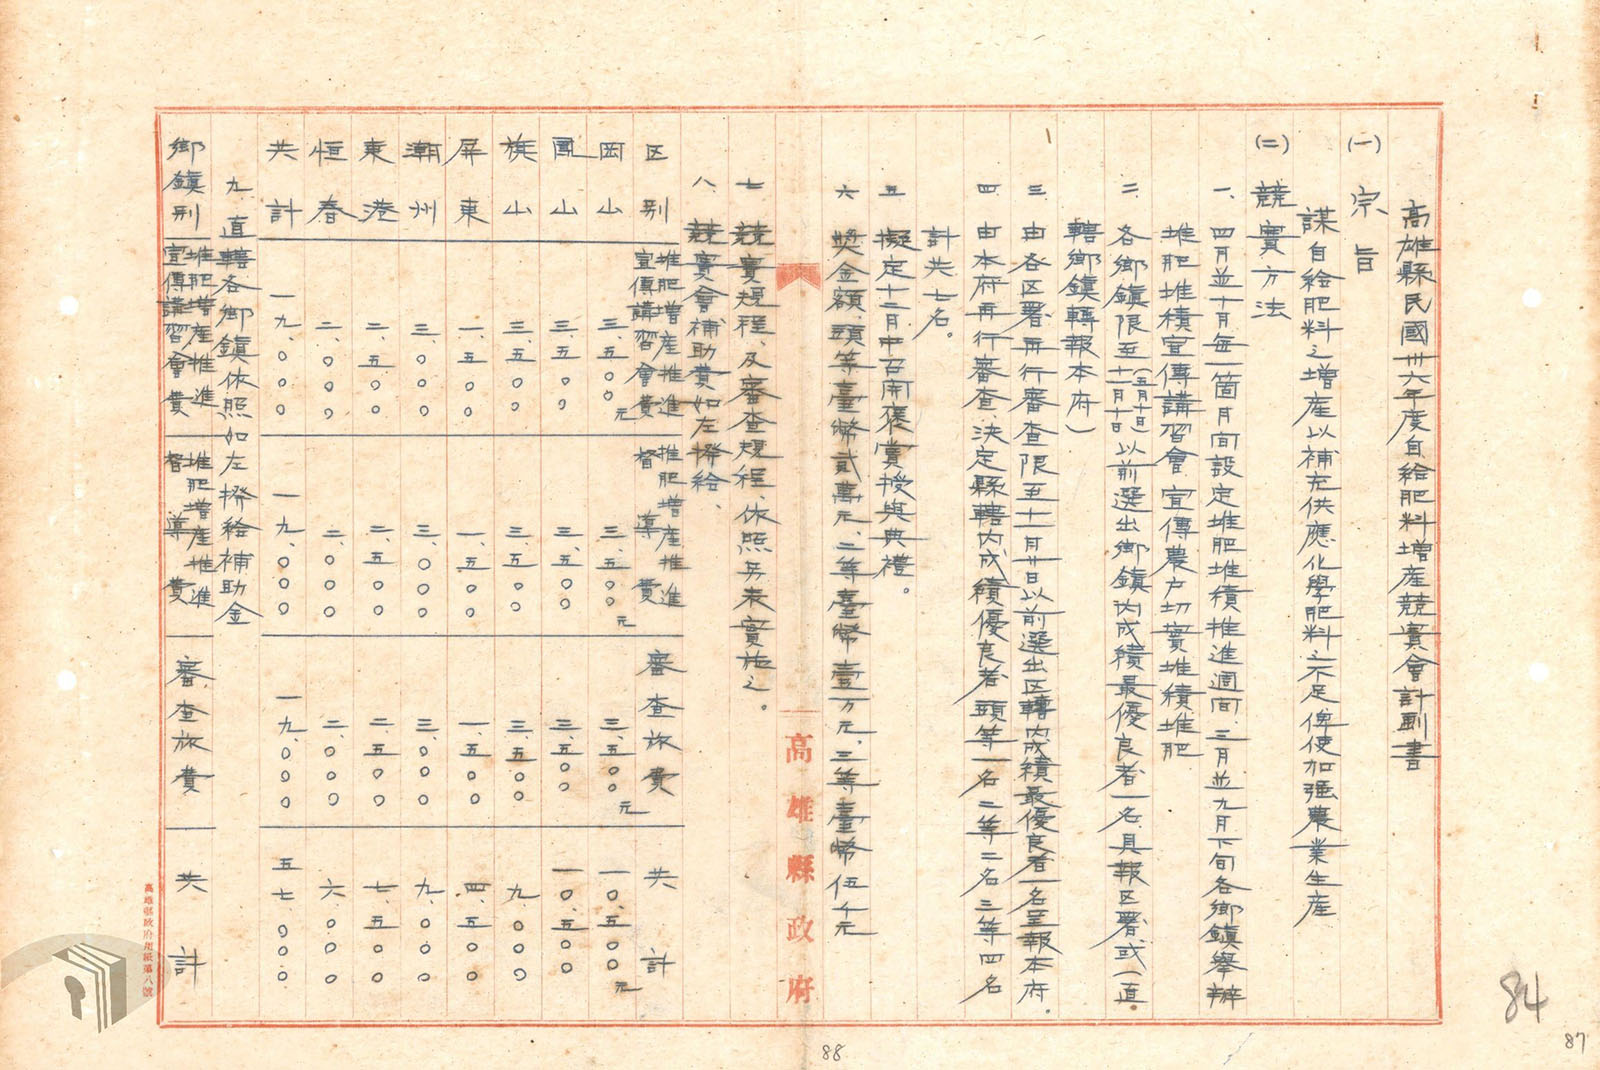 高雄縣民國卅六年度自給肥料增產競賽會計劃書
(一) 宗旨
謀自給肥料之增產以補充供應化學肥料之不足俾使加强農業生產
(二) 競賽方法
一、四月並十月每一箇月間設定堆肥堆積推進週間、三月並九月下旬各鄉鎮舉辦
堆肥堆積宣傳講習會宣傳農户切實堆積堆肥
二、各鄉鎮限至(五月十日)(十一月十日)以前選出鄉鎮内成績最優良者一名具報区署或(直
轄鄉鎮轉報本府)
三、由各区署再行審查限至十一月廿日以前選出区轄内成績最優良者一名呈報本府。
四、由本府再行審查、決定縣轄内成績優良者、頭等一名二等二名三等四名
計共七名。
五、擬定十二月中召開褒賞授與典禮。
六、奬金額、頭等臺幣貳萬元、二等臺幣壹万元、三等臺幣伍仟元
七、競賽規程、及審查規程、依照另表實施之。
八、競賽會補助費如左撥給、
区別 堆肥增產推進宣傳講習會費 堆肥增產推進督導費 審查旅費 共計
岡山 三、五〇〇元 三、五〇〇元 三、五〇〇元 一〇、五〇〇元
鳳山 三、五〇〇 三、五〇〇 三、五〇〇 一〇、五〇〇
旗山 三、五〇〇 三、五〇〇 三、五〇〇 九、〇〇〇
屏東 一、五〇〇 一、五〇〇 一、五〇〇 四、五〇〇
潮州 三、〇〇〇 三、〇〇〇 三、〇〇〇 九、〇〇〇
東港 二、五〇〇 二、五〇〇 二、五〇〇 七、五〇〇
恒春 二、〇〇〇 二、〇〇〇 二、〇〇〇 六、〇〇〇
共計 一九、〇〇〇 一九、〇〇〇 一九、〇〇〇 五七、〇〇〇
九、直轄各鄉鎮依照如左撥給補助金
鄉鎮別 堆肥增產推進宣傳講習會費 堆肥增產推進督導費 審查旅費 共計
高雄縣政府
84
87
88